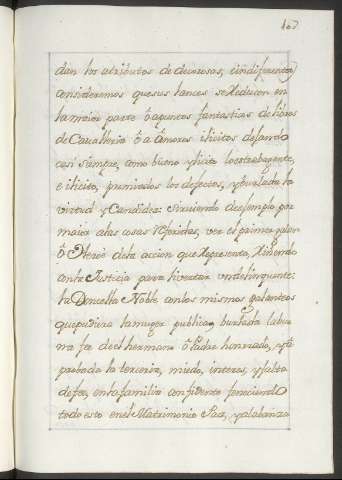 107
dan los atributos de decorosas, è indiferentes;
consideremos que sus lances se reducen en
la maior parte ò aquentos fantasticos de libros
de Cavalleria ò a Amores ilicitos dejando
casi siempre, como bueno y licito lo extrabagante,
e ilicito, premiados los defectos, y burlada la
virtud y Candidez: sirviendo de exemplo por
maior alas cosas referidas, ver el primer galan
ò Heroe dela accion que representa, riñendo
con la Justicia para livertar un delinquente:
la Doncella Noble con los mismos galanteos
que pudiera la muger publica, burlada la bue
na fee del hermano ò Padre honrrado, y a
probada la terceria, miedo, interes, y falta
de fee, en la familia confidente feneciendo
todo esto en el Matrimonio Paz, y alabanza